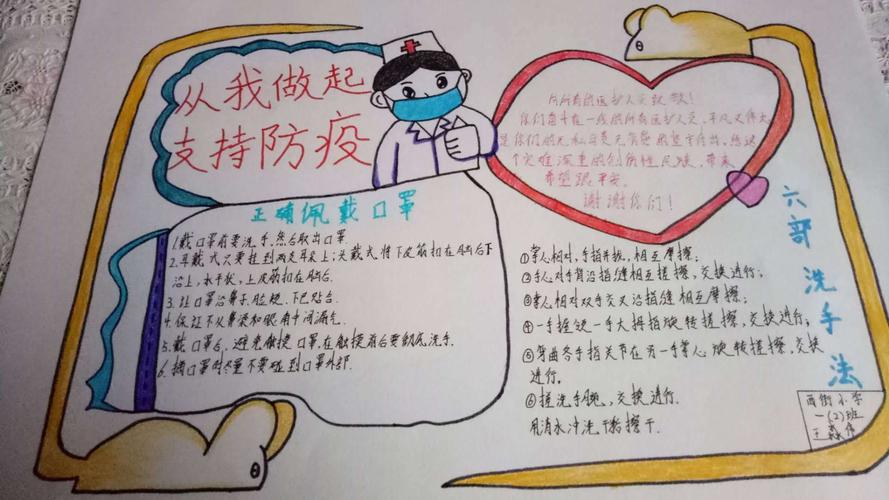 从我做起
支持防疫
正确佩戴口罩
1.戴口罩前要洗手,然后取出口罩.
2.耳戴式只要挂到两边耳朵上;头戴式将下皮筋扣在脑后下
沿上,水平状,上皮筋扣在脑后.
3.让口罩沿鼻子、脸颊、下巴贴合.
4.保证不从鼻梁和眼角中间漏气.
5.戴口罩后,避免触摸口罩,在触摸前后要彻底洗手.
6.摘口罩时尽量不要碰到口罩外部.
向所有的医护人员致敬!
你们奋斗在一线的所有医护人员,平凡又伟大
是你们的无私
个灾难深重的
民族,带来
希望跟平安.
谢谢你们!
六部洗手法
①掌心相对,手指并拢,相互摩擦;
②手心对手背沿指缝相互搓擦,交换进行;
③掌心相对双手交叉沿指缝相互摩擦;
④一手握住一手大拇指旋转搓擦,交换进行;
⑤弯曲各手指关节在另一手掌心旋转搓擦,交换
进行.
⑥搓洗手腕,交换进行.
用清水冲洗干擦干.
西街小学
一(2)班
王
伟